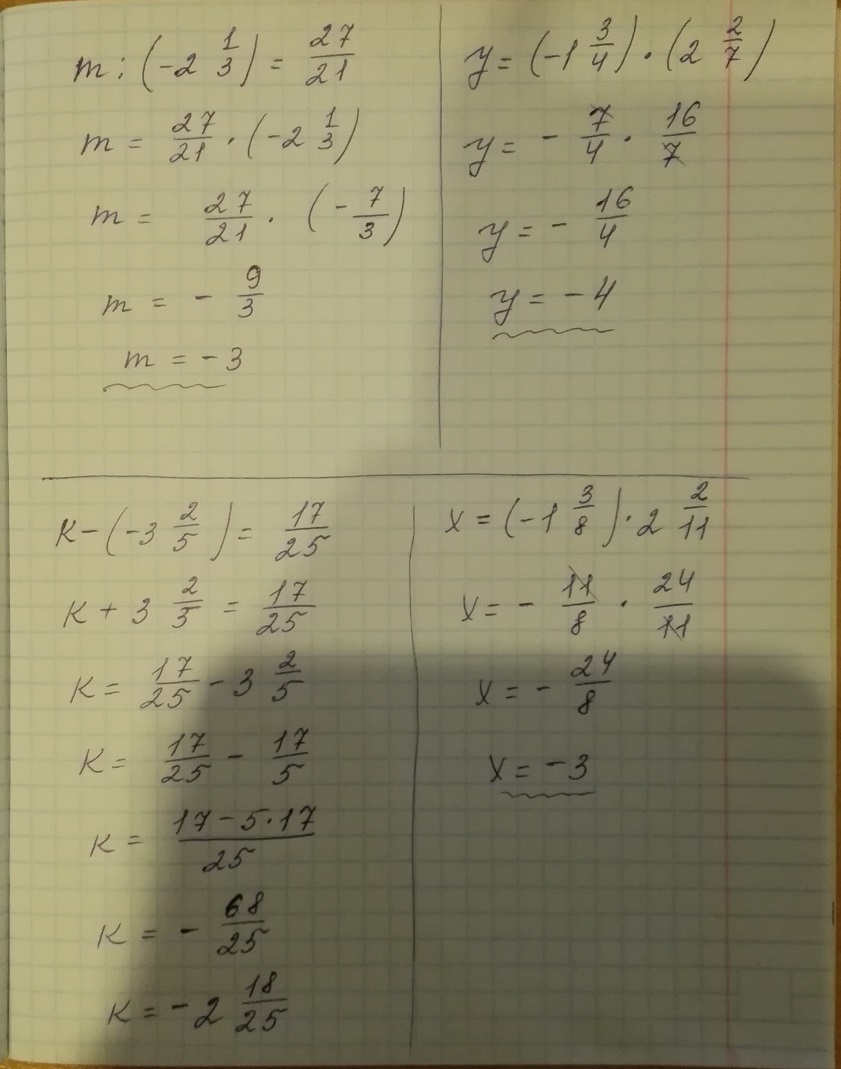 m : (-2 1/3) = 27/21
m = 27/21 · (-2 1/3)
m = 27/21 · (- 7/3)
m = - 9/3
m = -3
y = (-1 3/4) · (2 2/7)
y = - 7/4 · 16/7
y = - 16/4
y = -4
к - (-3 2/5) = 17/25
к + 3 2/5 = 17/25
к = 17/25 - 3 2/5
к = 17/25 - 17/5
к = 17-5·17/25
к = - 68/25
к = -2 18/25
x = (-1 3/8) · 2 2/11
x = - 11/8 · 24/11
x = - 24/8
x = -3